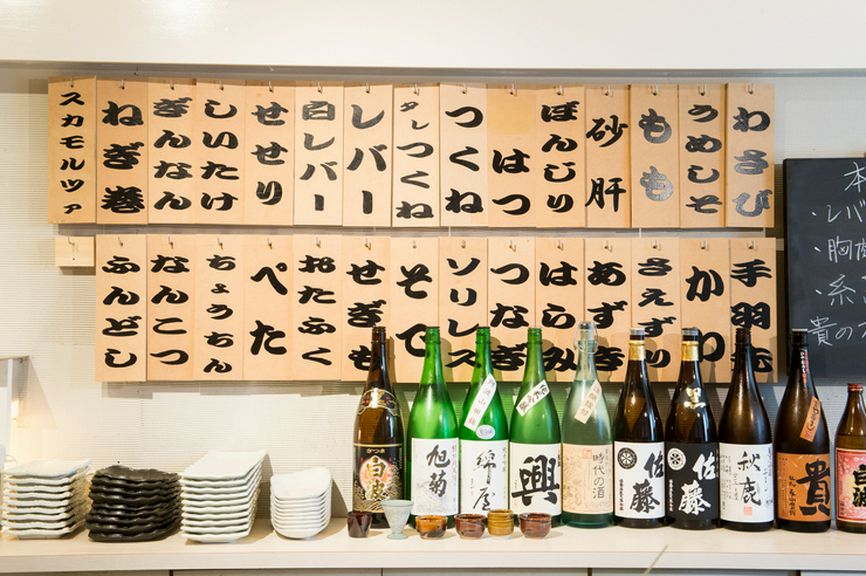 わさび
うめしそ
もも
砂肝
ぼんじり
はつ
つくね
タレつくね
レバー
白レバー
せせり
しいたけ
ぎんなん
ねぎ巻
スカモルツァ
手羽先
かわ
さえずり
あずき
はらみ
つなぎ
ソリレス
そで
せぎも
おたふく
ぺた
ちょうちん
なんこつ
ふんどし
本
・レバ
・胸
・糸
貴の
白波
旭菊
綿屋
興
時代の酒
佐藤
黒
佐藤
秋鹿
貴
白波